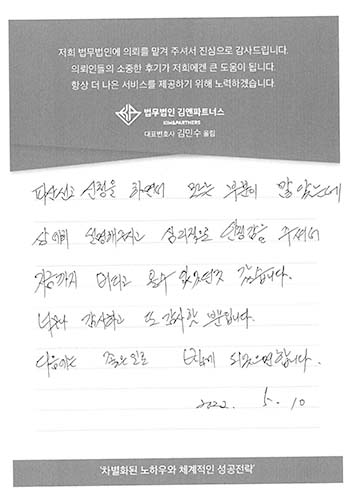 저희 법무법인에 의뢰를 맡겨 주셔서 진심으로 감사드립니다.
의뢰인들의 소중한 후기가 저희에겐 큰 도움이 됩니다.
항상 더 나은 서비스를 제공하기 위해 노력하겠습니다.
법무법인 김앤파트너스
KIM&PARTNERS
대표변호사 김민수 올림
파산선고 신청을 하면서 모르는 부분이 많았는데
설명해주시고 심리적으로 안정감을 주셔서
지금까지 버티고 올수 있었던것 같습니다.
너무나 감사하고 또 감사할 부분입니다.
다음에는 좋은일로 되었으면 합니다.
2022. 5. 10
'차별화된 노하우와 체계적인 성공전략'